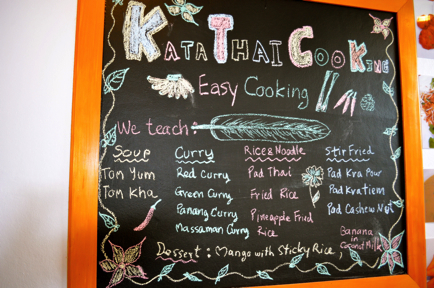 KATA THAI COOKING
Easy Cooking
We teach
Soup
Tom Yum
Tom Kha
Curry
Red Curry
Green Curry
Panang Curry
Massaman Curry
Rice & Noodle
Pad Thai
Fried Rice
Pineapple Fried
Rice
Stir Fried
Pad Kra Pour
Pad Kratiem
Pad Cashew Nut
Dessert : Mango with Sticky Rice,
Banana
in
Coconut Milk